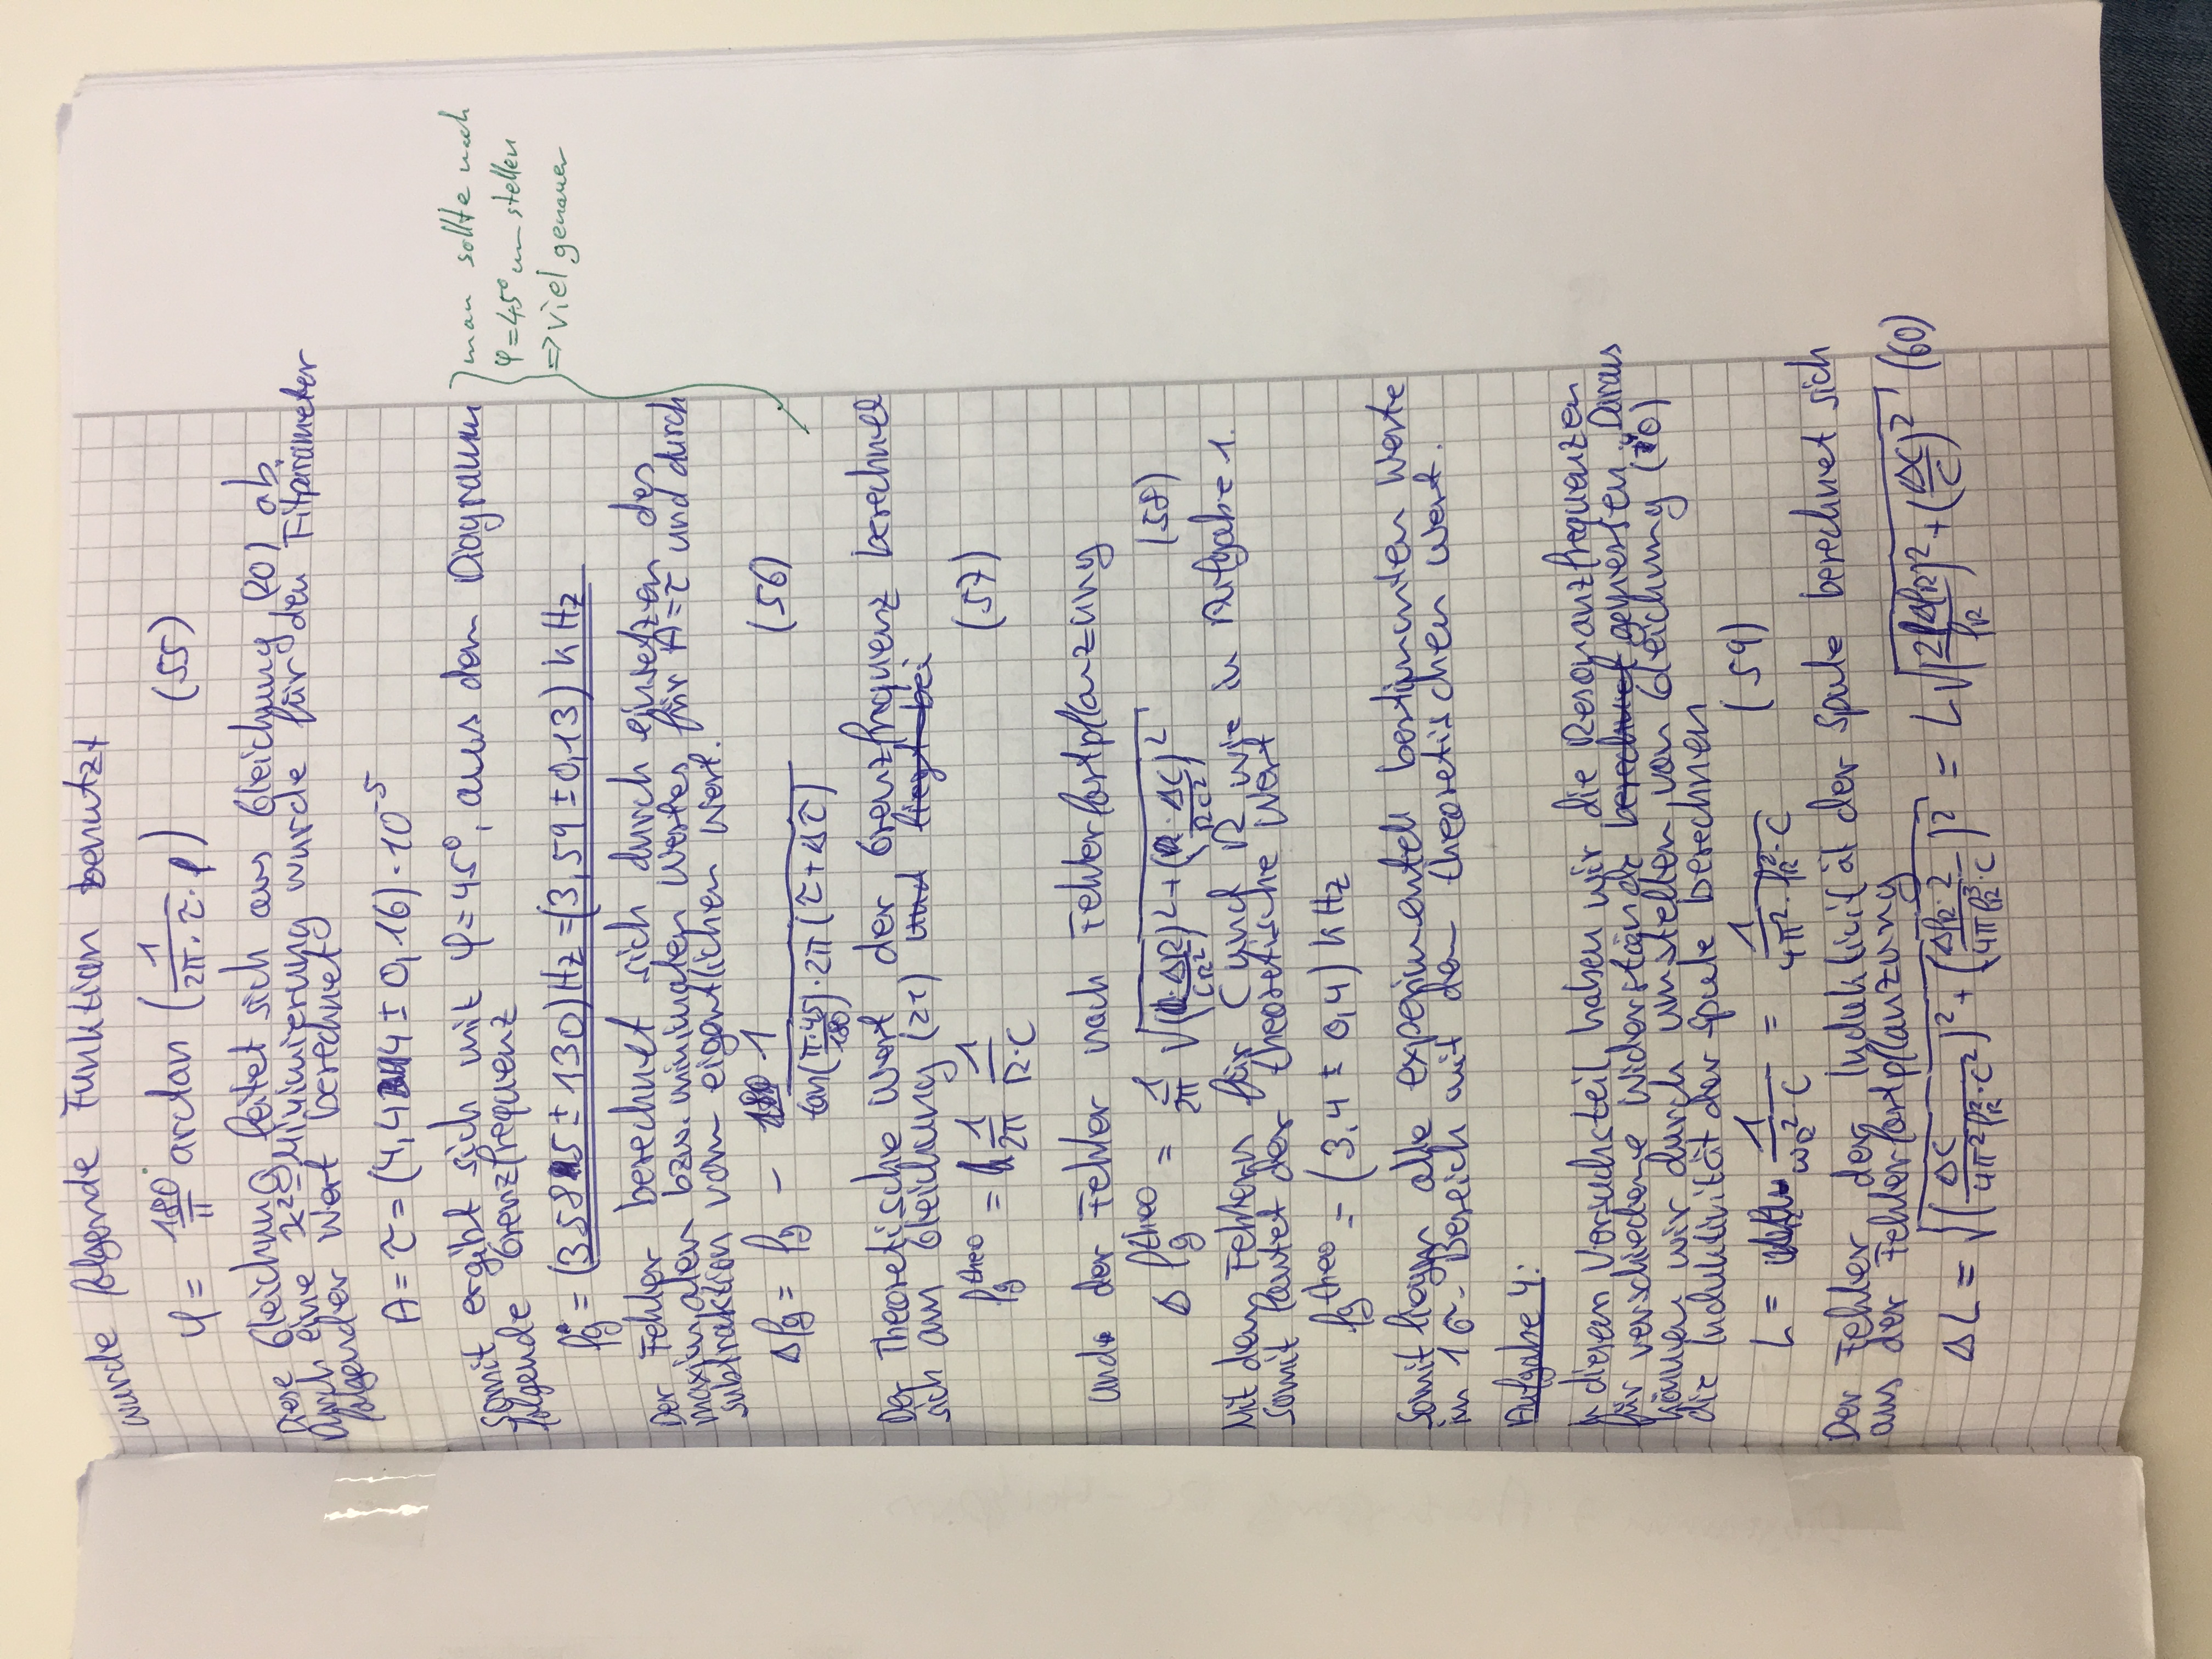 wurde folgende Funktion benutzt
φ = 180°/π arctan (1/(2π · τ · f)) (55)
Diese Gleichung leitet sich aus Gleichung (20) ab.
Durch eine χ²-Minimierung wurde für den Fitparameter
folgender Wert berechnet
A = τ = (4,44 ± 0,16) · 10⁻⁵
Somit ergibt sich mit φ = 45°, aus dem Diagramm
folgende Grenzfrequenz
man sollte nach
φ = 45° umstellen
=> viel genauer
fg = (3585 ± 130) Hz = (3,59 ± 0,13) kHz
Der Fehler berechnet sich durch einsetzen des
maximalen bzw. minimalen Wertes für A = τ und durch
subtraktion vom eigentlichen Wert.
Δfg = fg − 1/(tan(π·45/180) · 2π (τ + Δτ)) (56)
Der Theoretische Wert der Grenzfrequenz berechnet
sich aus Gleichung (21) und liegt bei
fg^theo = 1/2π 1/(R·C) (57)
und der Fehler nach Fehlerfortpflanzung
Δfg^theo = 1/2π √((ΔR/(CR²))² + (ΔC/(RC²))²) (58)
Mit den Fehlern für C und R wie in Aufgabe 1.
Somit lautet der theoretische Wert
fg^theo = (3,4 ± 0,4) kHz
Somit liegen alle experimentell bestimmten Werte
im 1σ-Bereich mit dem theoretischen Wert.
Aufgabe 4:
In diesem Versuchsteil haben wir die Resonanzfrequenzen
für verschiedene Widerstände berechnet gemessen. Daraus
können wir durch umstellen von Gleichung
die Induktivität der Spule berechnen
L = 1/(ωR² · C) = 1/(4π² · fR² · C) (59)
Der Fehler der Induktivität der Spule berechnet sich
aus der Fehlerfortpflanzung
ΔL = √((ΔC/(4π²fR²·C²))² + (ΔfR·2/(4πfR³·C))²) = L √((2ΔfR/fR)² + (ΔC/C)²) (60)